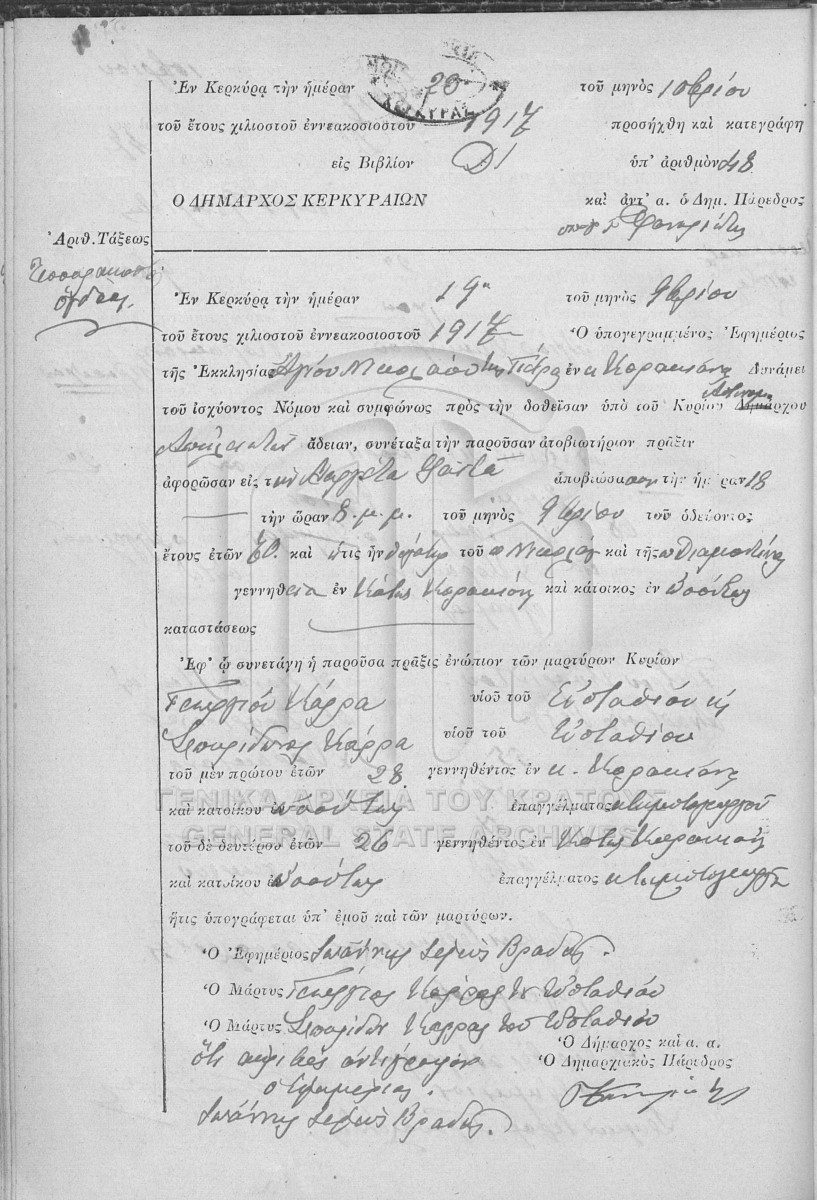 Ἐν Κερκύρᾳ τὴν ἡμέραν 20 τοῦ μηνὸς 10βρίου
ΚΕΡΚΥΡΑΣ
τοῦ ἔτους χιλιοστοῦ ἐννεακοσιοστοῦ 1917 προσήχθη καὶ κατεγράφη
εἰς Βιβλίον ὑπ' ἀριθμὸν 48
Ο ΔΗΜΑΡΧΟΣ ΚΕΡΚΥΡΑΙΩΝ καὶ ἀντ' α. ὁ Δημ. Πάρεδρος
Ἀριθ. Τάξεως
Τεσσαρακοστὴ
ὀγδόη.
Ἐν Κερκύρᾳ τὴν ἡμέραν 19η τοῦ μηνὸς 9βρίου
τοῦ ἔτους χιλιοστοῦ ἐννεακοσιοστοῦ 1917 Ὁ ὑπογεγραμμένος Ἐφημέριος
τῆς Ἐκκλησίας Ἁγίου Νικολάου ἐν κ. Κορακιάνᾳ Δυνάμει
τοῦ ἰσχύοντος Νόμου καὶ συμφώνως πρὸς τὴν δοθεῖσαν ὑπὸ τοῦ Κυρίου Δημάρχου
ἄδειαν, συνέταξα τὴν παροῦσαν ἀποβιωτήριον πρᾶξιν
ἀφορῶσαν εἰς τὴν ἀποβιώσασαν τὴν ἡμέραν 18
τὴν ὥραν 8 μ.μ. τοῦ μηνὸς 9βρίου τοῦ ὁδεύοντος
ἔτους ἐτῶν καὶ ἥτις ἦν θυγάτηρ τοῦ π Νικολάου καὶ τῆς π Διαμαντίνας
γεννηθεῖσα ἐν Κάτω Κορακιάνᾳ καὶ κάτοικος ἐν
καταστάσεως
Ἐφ' ᾧ συνετάγη ἡ παροῦσα πρᾶξις ἐνώπιον τῶν μαρτύρων Κυρίων
Γεωργίου Κάρρα υἱοῦ τοῦ Εὐσταθίου κ
Σπυρίδωνος Κάρρα υἱοῦ τοῦ Εὐσταθίου
τοῦ μὲν πρώτου ἐτῶν 28 γεννηθέντος ἐν κ. Κορακιάνᾳ
ΓΕΝΙΚΑ ΑΡΧΕΙΑ ΤΟΥ ΚΡΑΤΟΥΣ
καὶ κατοίκου ἐν ἐπαγγέλματος κτηματογεωργοῦ
GENERAL STATE ARCHIVES
τοῦ δὲ δευτέρου ἐτῶν 26 γεννηθέντος ἐν Κάτω Κορακιάνᾳ
καὶ κατοίκου ἐν ἐπαγγέλματος κτηματογεωργοῦ
ἥτις ὑπογράφεται ὑπ' ἐμοῦ καὶ τῶν μαρτύρων.
Ὁ Ἐφημέριος Ἰωάννης Ἱερεὺς Βραδῆς.
Ὁ Μάρτυς Γεώργιος Κάρρας του Εὐσταθίου
Ὁ Μάρτυς Σπυρίδων Κάρρας του Εὐσταθίου
Ὁ Δήμαρχος καὶ α. α.
ὅτι ἀκριβὲς ἀντίγραφον Ὁ Δημαρχιακὸς Πάρεδρος
ὁ Ἐφημέριος.
Ἰωάννης Ἱερεὺς Βραδῆς.